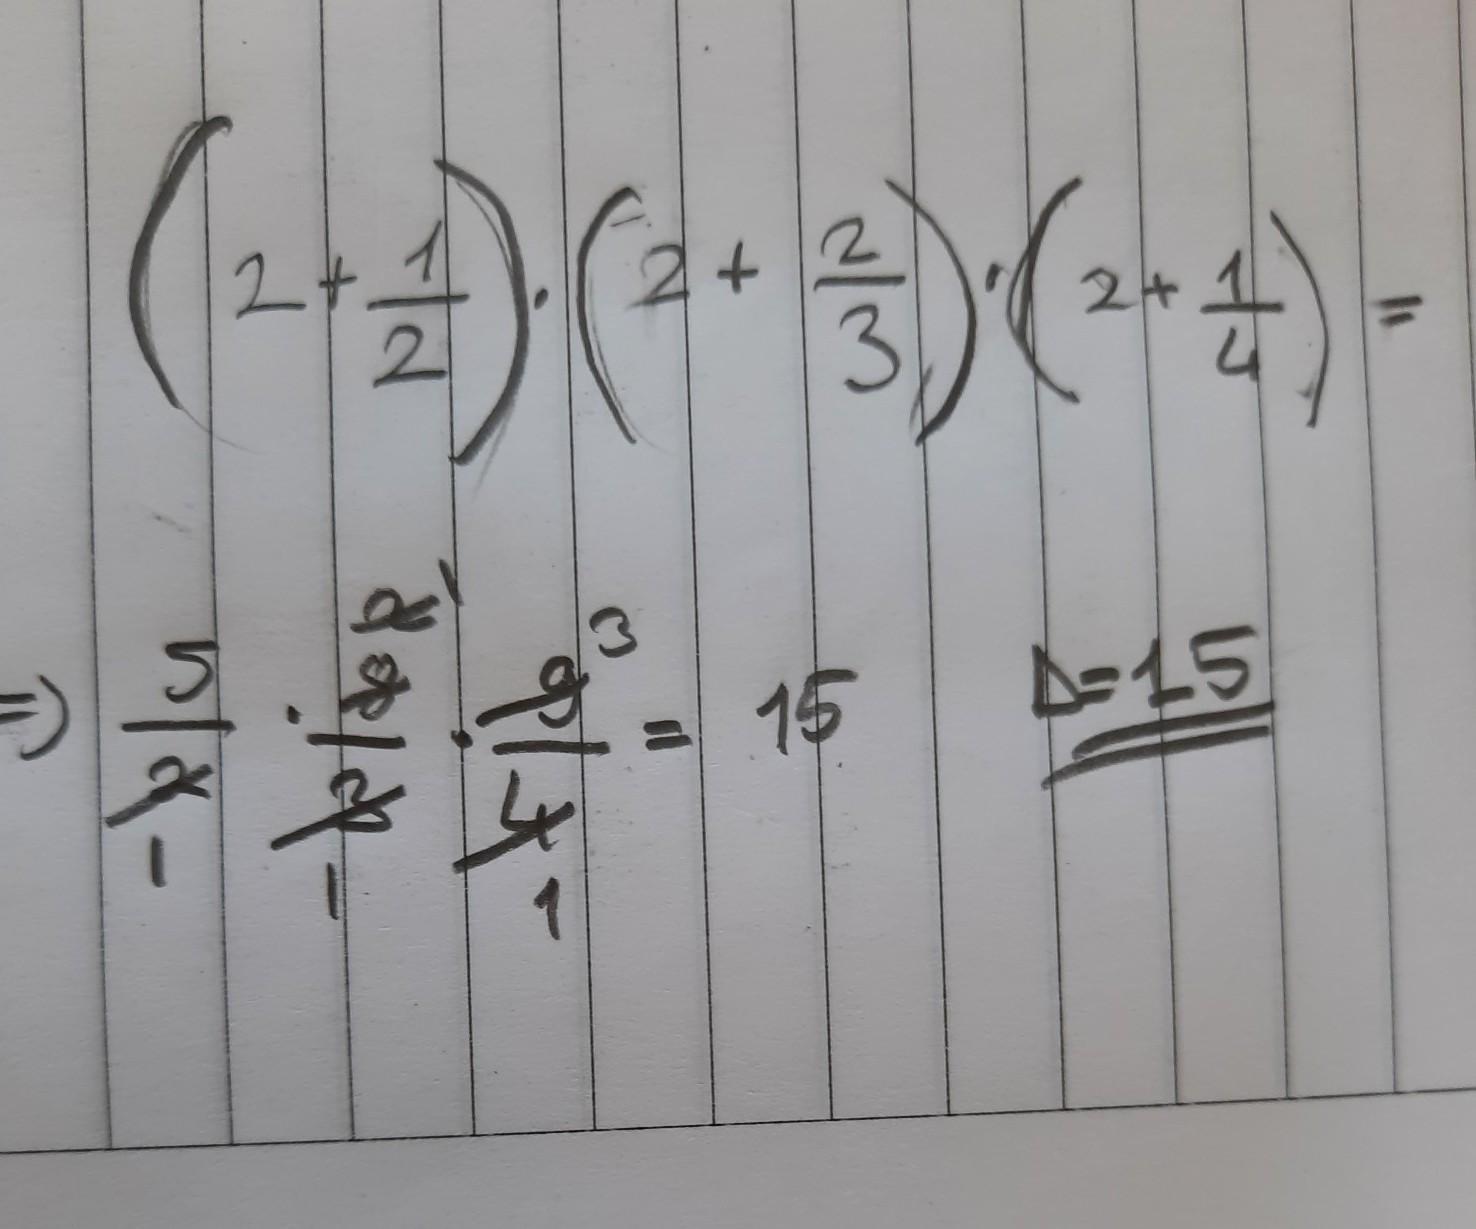 (2 + 1/2) · (2 + 2/3) · (2 + 1/4) =
=> 5/2 1 · 8 2 1/3 1 · 9 3/4 1 = 15 D=15